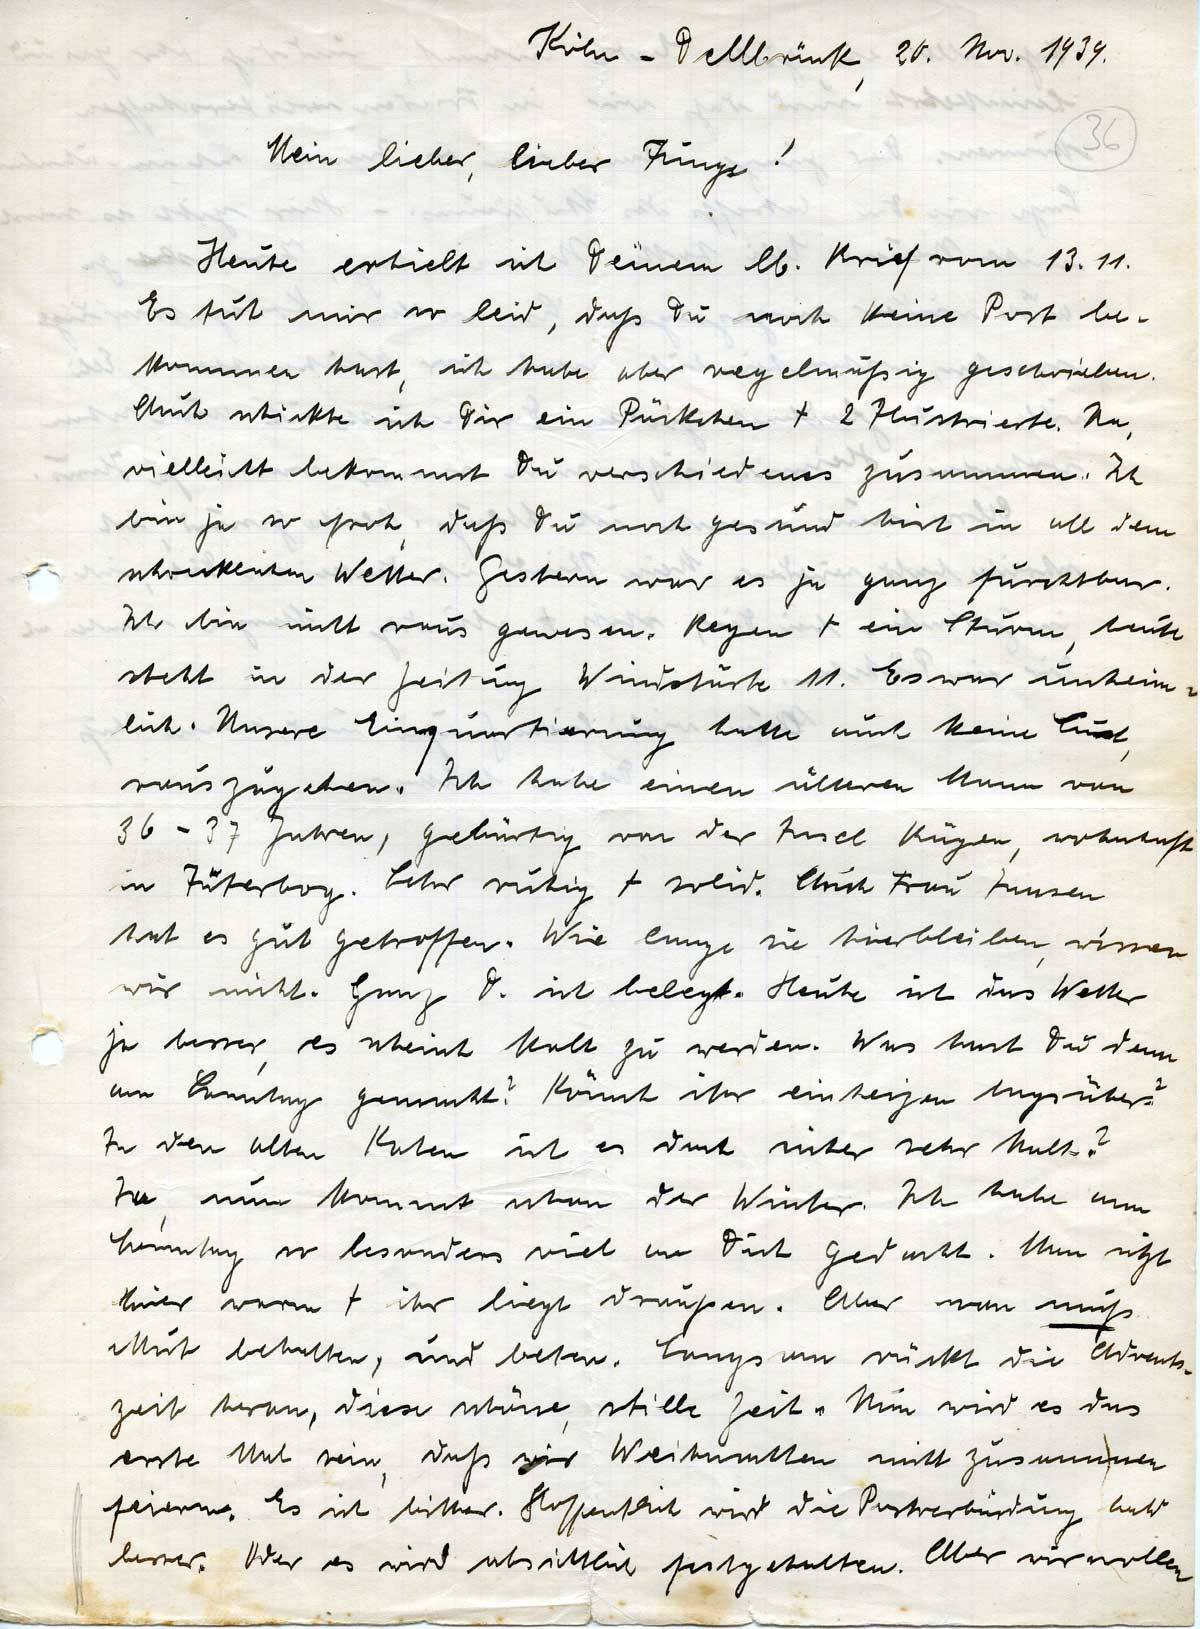 Köln - Dellbrück, 20. Nov. 1939.
36
Mein lieber, lieber Junge!
Heute erhielt ich Deinen lb. Brief vom 13.11.
Es tut mir so leid, daß Du noch keine Post be-
kommen hast, ich habe aber regelmäßig geschrieben.
Auch schickte ich Dir ein Päckchen + 2 Illustrierte. Na,
vielleicht bekommst Du verschiedenes zusammen. Ich
bin ja so froh, daß Du noch gesund bist in all dem
schrecklichen Wetter. Gestern war es ja ganz furchtbar.
Ich bin nicht raus gewesen. Regen + ein Sturm, heute
steht in der Zeitung Windstärke 11. Es war unheim-
lich. Unsere Einquartierung hatte auch keine Lust,
rauszugehen. Ich habe einen älteren Mann von
36 - 37 Jahren, gebürtig von der Insel Rügen, wohnhaft
in Jüterbog. Sehr ruhig + solid. Auch Frau Jansen
hat es gut getroffen. Wie lange sie hierbleiben, wissen
wir nicht. Ganz D. ist belegt. Heute ist das Wetter
ja besser, es scheint kalt zu werden. Was hast Du denn
am Sonntag gemacht? Könnt ihr einheizen tagsüber?
In den alten Katen ist es doch sicher sehr kalt?
Ja, nun kommt schon der Winter. Ich habe am
Sonntag so besonders viel an Dich gedacht. Man sitzt
hier warm + ihr liegt draußen. Aber man muß
Mut behalten, und beten. Langsam rückt die Advents-
zeit heran, diese schöne, stille Zeit. Nun wird es das
erste Mal sein, daß wir Weihnachten nicht zusammen
feiern. Es ist bitter. Hoffentlich wird die Postverbindung bald
besser. Oder es wird absichtlich festgehalten. Aber wir wollen